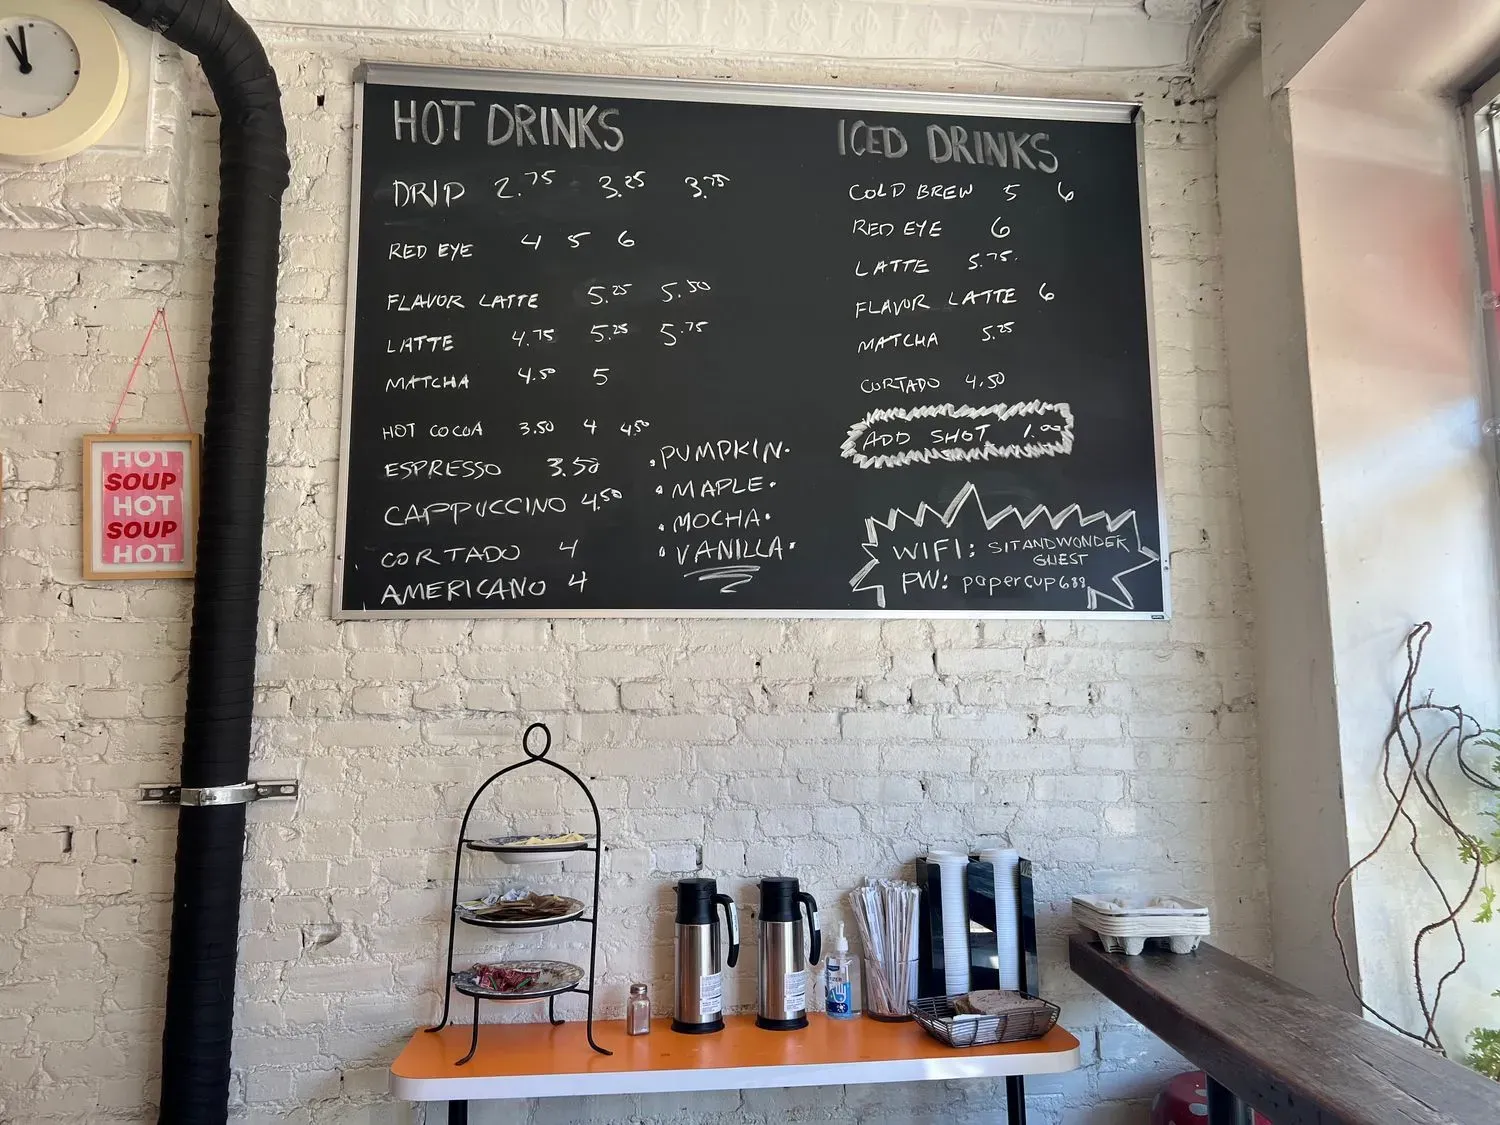 HOT DRINKS
DRIP 2.75 3.25 3.75
RED EYE 4 5 6
FLAVOR LATTE 5.25 5.50
LATTE 4.75 5.25 5.75
MATCHA 4.50 5
HOT COCOA 3.50 4 4.50
ESPRESSO 3.50
CAPPUCCINO 4.50
CORTADO 4
AMERICANO 4
• PUMPKIN •
• MAPLE •
• MOCHA •
• VANILLA •
ICED DRINKS
COLD BREW 5 6
RED EYE 6
LATTE 5.75
FLAVOR LATTE 6
MATCHA 5.25
CORTADO 4.50
ADD SHOT 1.00
WIFI: SITANDWONDER
GUEST
PW: papercup688
HOT
SOUP
HOT
SOUP
HOT